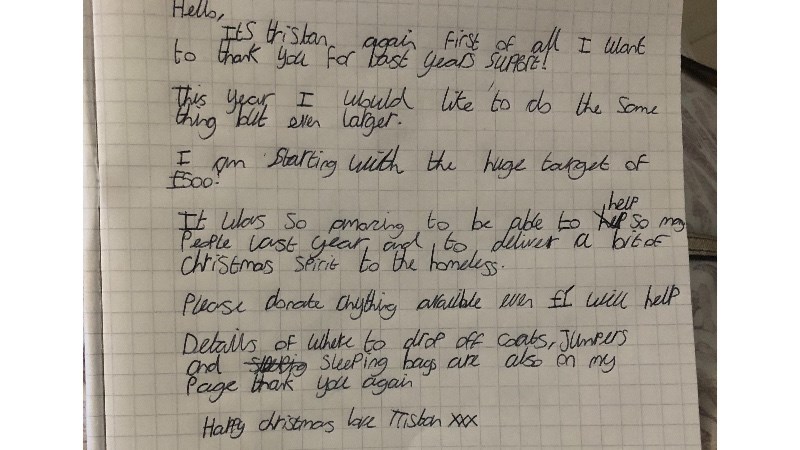 Hello,
Its tristan again first of all I want
to thank you for last years support!
This year I would like to do the same
thing but even larger.
I am starting with the huge target of
£500!
help
It was so amazing to be able to so many
People last year and to deliver a bit of
christmas spirit to the homeless.
Please donate anything availible even £1 will help
Details of where to drop off coats, Jumpers
and sleeping bags are also on my
page thank you again
Happy christmas love Tristan xxx